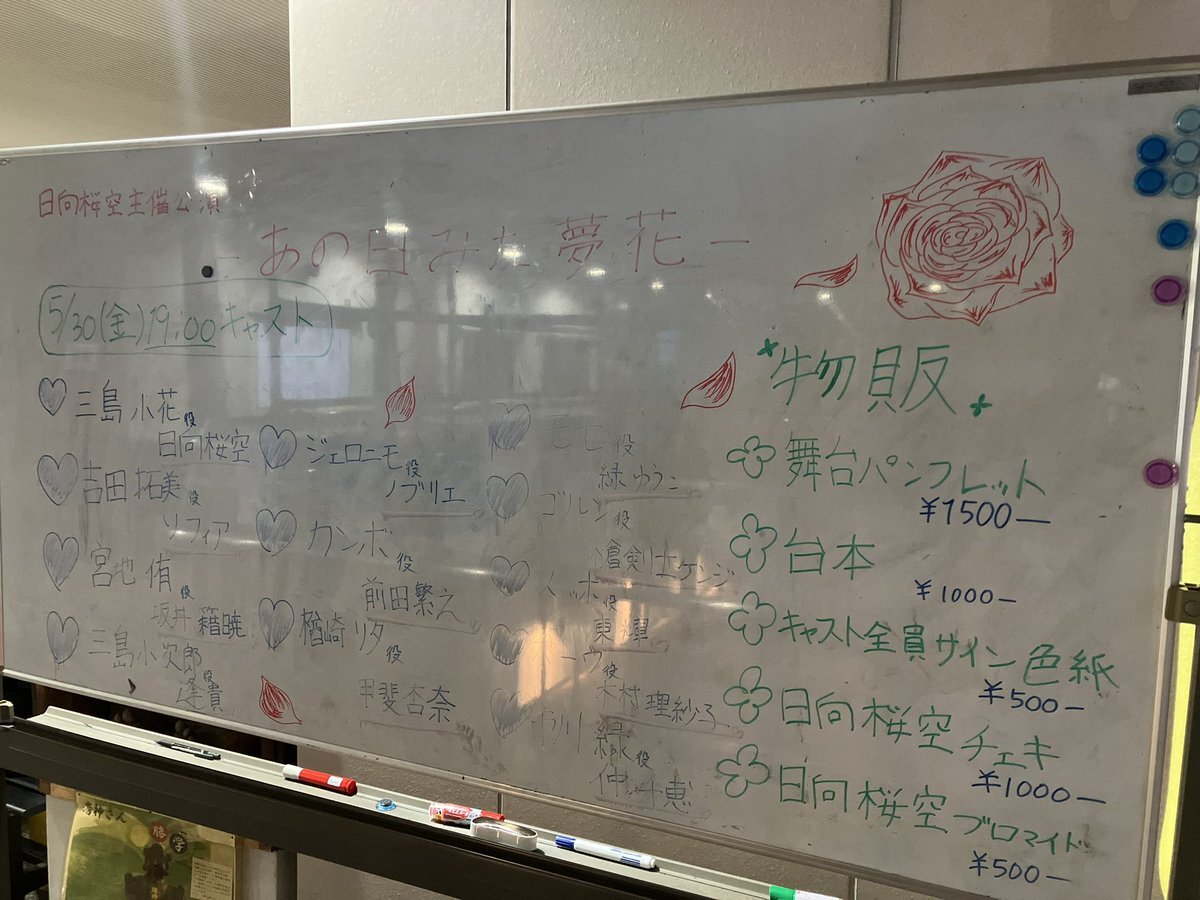 日向桜空主催公演
-あの日みた夢花-
5/30(金)19:00キャスト
三島小花役
日向桜空
吉田拓美役
ソフィア
宮地侑役
坂井 籍暁
三島小次郎役
逢貴
ジェロニモ役
ノブリエ
カンボ役
前田繁之
楢崎リタ役
甲斐杏奈
モモ役
緑ゆうこ
ゴルレン役
剣士ケンジ
役
東
役
木村理紗子
緑役
仲 恵
物販
舞台パンフレット
¥1500-
台本
¥1000-
キャスト全員サイン色紙
¥500-
日向桜空チェキ
¥1000-
日向桜空ブロマイド
¥500-
唐神さん
勝
学